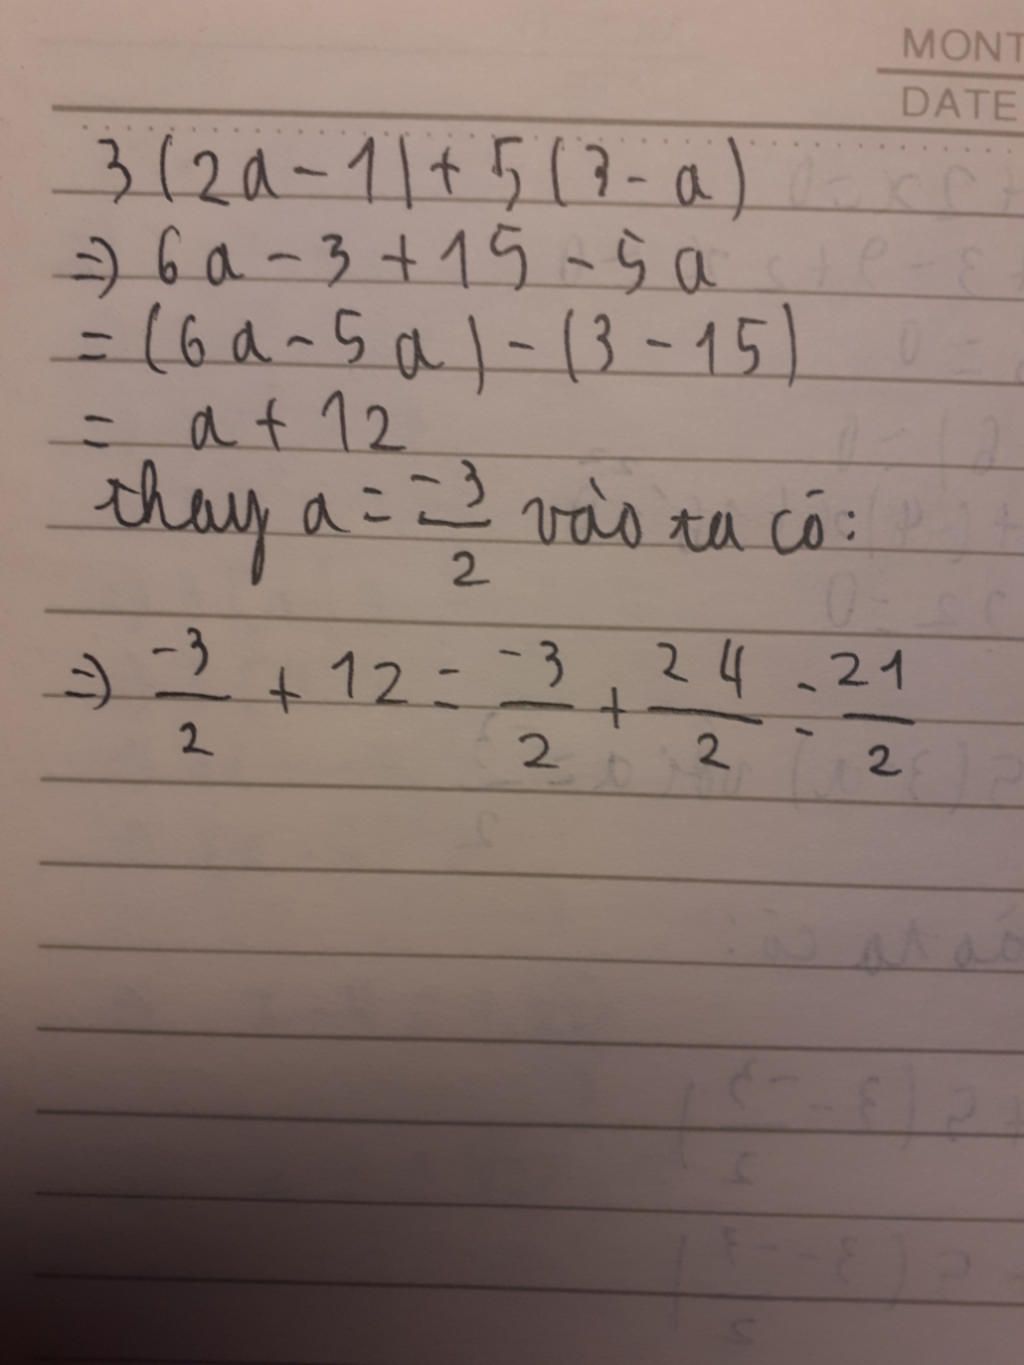 MONT
DATE
3(2a-1)+5(3-a)
=> 6a-3+15-5a
= (6a-5a)-(3-15)
= a+12
thay a = -3/2 vào ta có:
=> -3/2 + 12 = -3/2 + 24/2 = 21/2